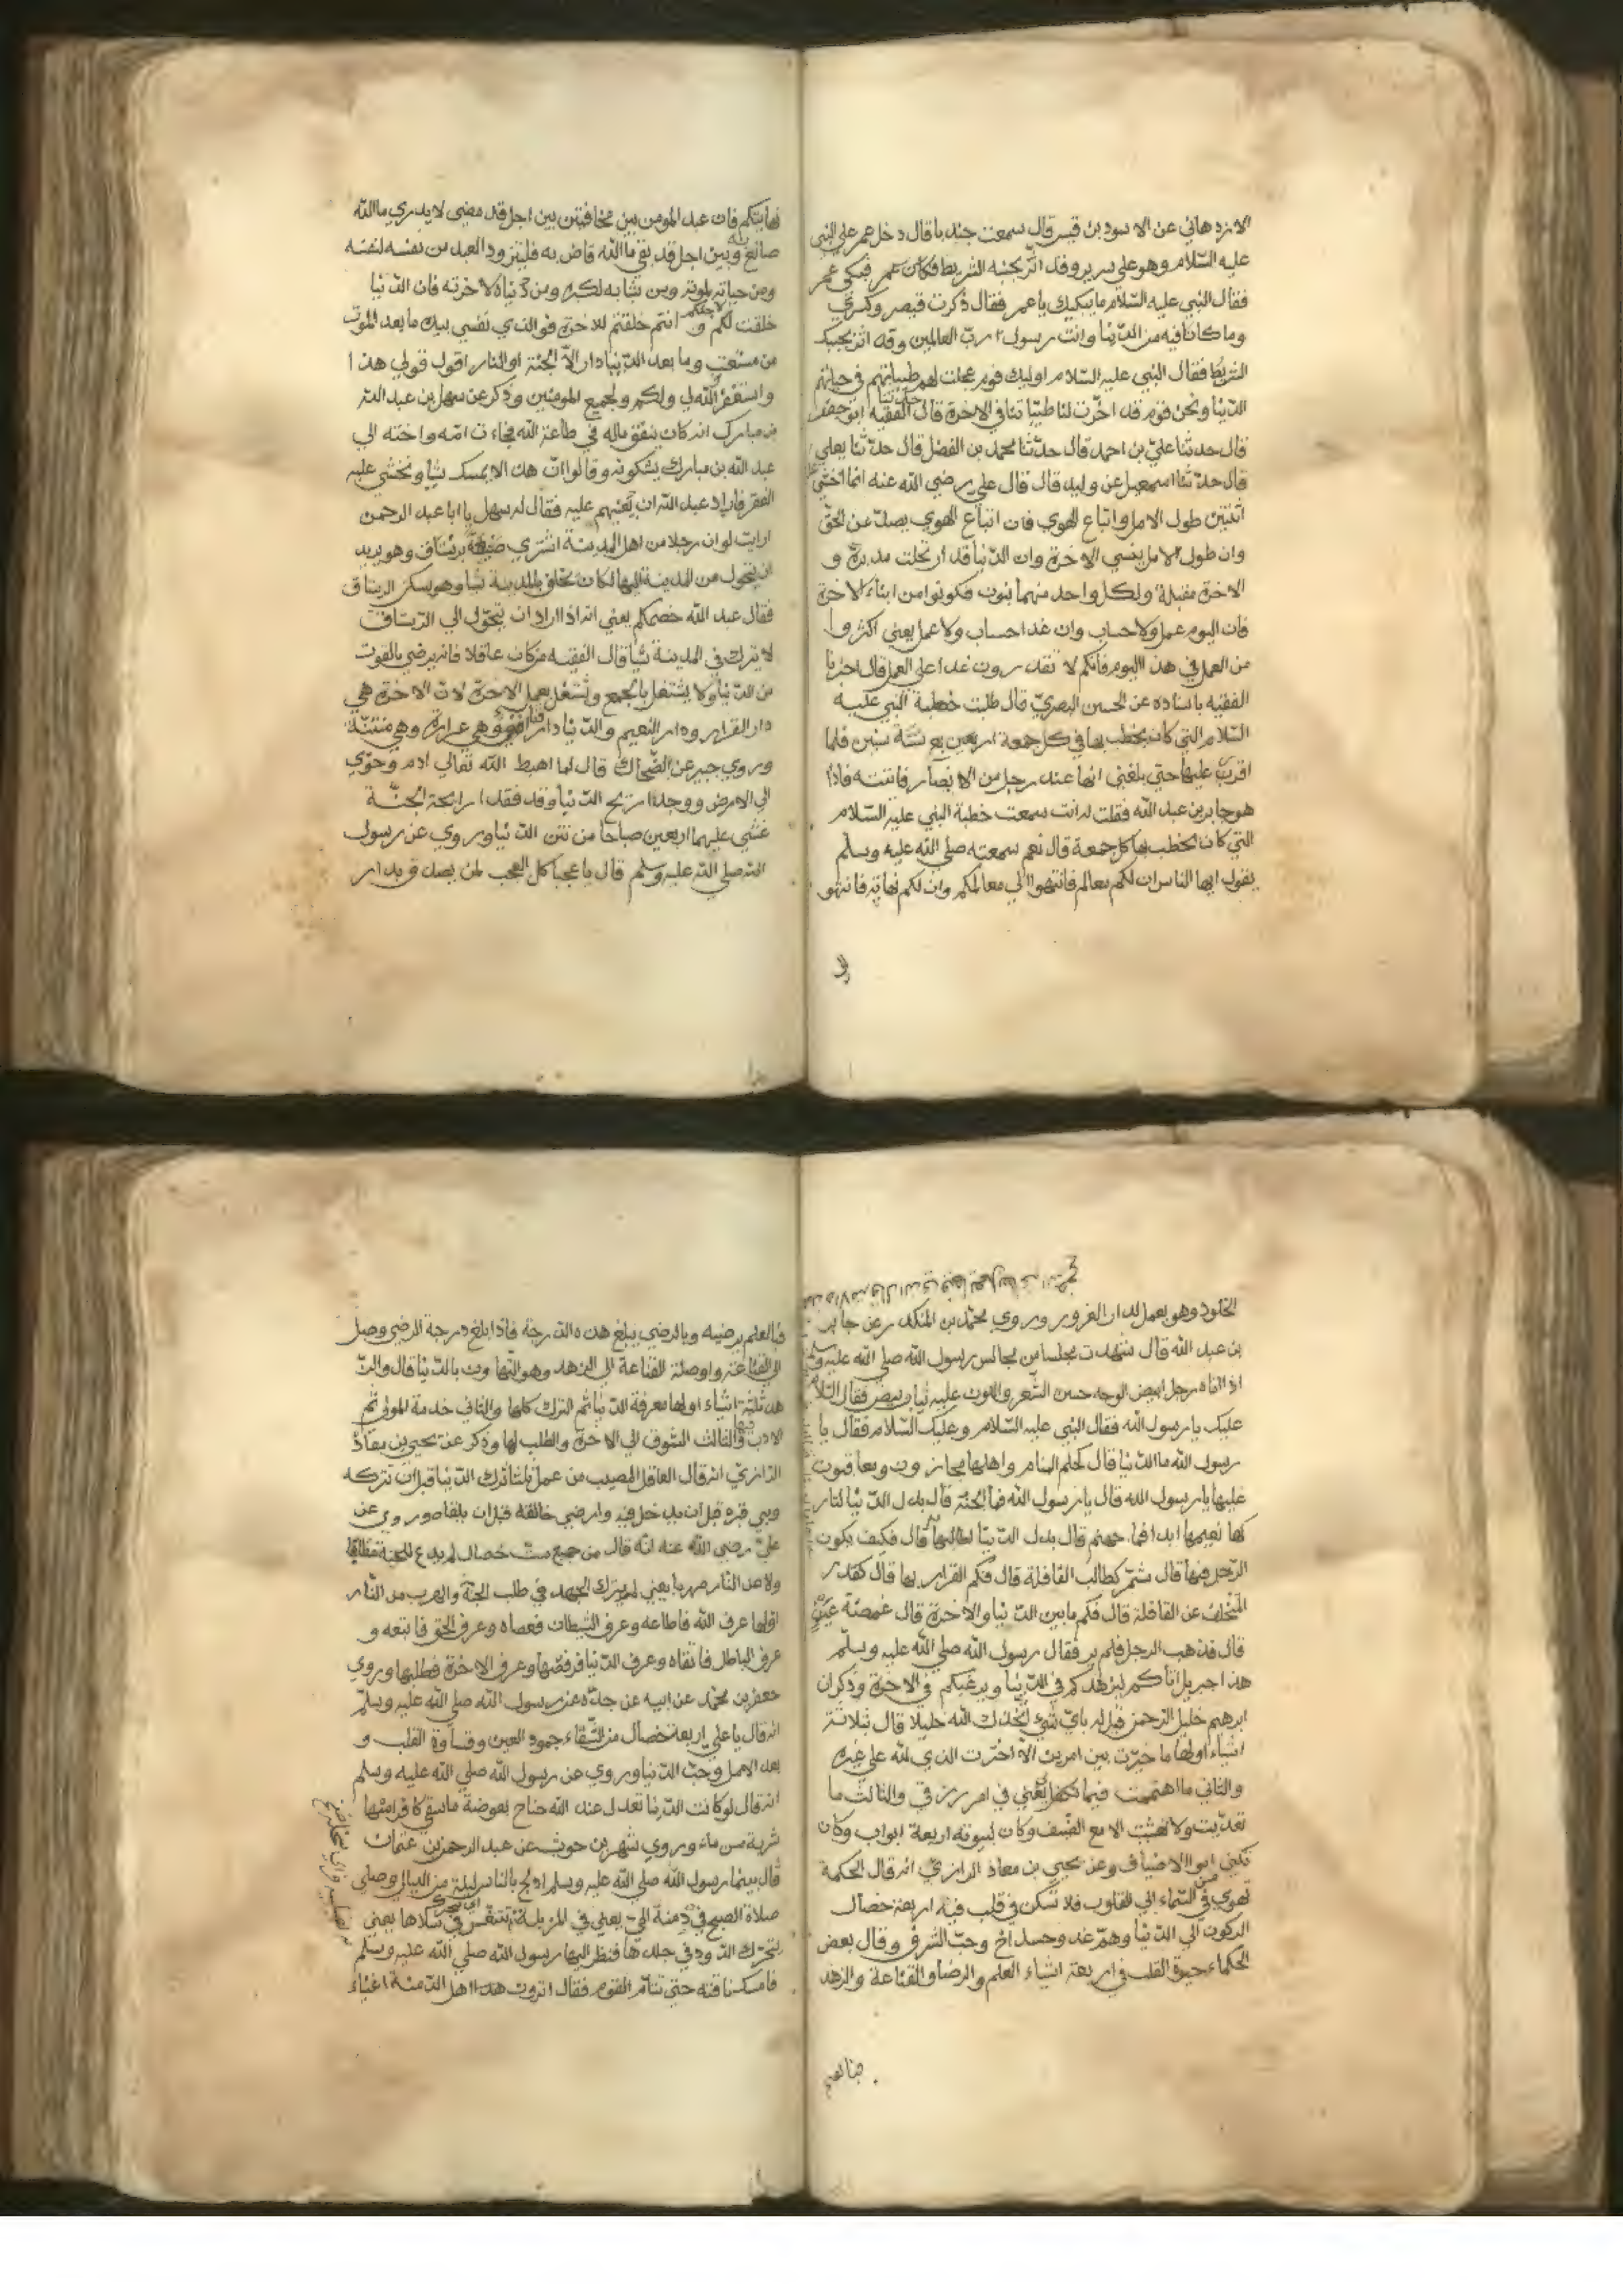 الازدهاني عن الاسود بن قيس قال سمعت جندبا قال دخل عمر علي النبي
عليه السلام وهو علي سرير وقد اثر بجنبه الشريط فكان عمر فبكي عمر
فقال النبي عليه السلام ما يبكيك يا عمر فقال ذكرت قيصر وكسري
وما كانا فيه من الدنيا وانت رسول رب العالمين وقد اثر بجنبك
الشريط فقال النبي عليه السلام اوليك قوم عجلت لهم طيباتهم في حياتهم
الدنيا ونحن قوم قد اخرت لنا طيباتنا في الاخرة قال الفقيه ابو جعفر
قال حدثنا علي بن احمد قال حدثنا محمد بن الفضل قال حدثنا يعلي
قال حدثنا اسمعيل عن وليد قال قال علي رضي الله عنه انما اخشي
اثنتين طول الامل واتباع الهوي فان اتباع الهوي يصد عن الحق
وان طول الامل ينسي الاخرة وان الدنيا قد ارتحلت مدبرة و
الاخرة مقبلة ولكل واحد منهما بنون فكونوا من ابناء الاخرة
فان اليوم عمل ولا حساب وان غدا حساب ولا عمل يعني اكثروا
من العمل في هذا اليوم فانكم لا تقدرون غدا علي العمل قال اخبرنا
الفقيه باسناده عن الحسن البصري قال طلبت خطبة النبي عليه
السلام التي كان يخطب بها في كل جمعة اربعين بع ستة سنين فلما
اقرب عليها حتي بلغني انها عند رجل من الانصار فاتيته فاذا
هو جابر بن عبد الله فقلت له انت سمعت خطبة النبي عليه السلام
التي كان يخطب بها كل جمعة قال نعم سمعته صلي الله عليه وسلم
يقول ايها الناس ان لكم معالم فانتهوا الي معالمكم وان لكم نهاية فانتهو
الي
نهايتكم فان عبد المومن بين مخافتين بين اجل قد مضي لا يدري ما الله
صانع به وبين اجل قد بقي ما الله قاض به فليتزود العبد من نفسه لنفسه
ومن حياته لموته ومن شبابه لكبره ومن دنياه لاخرته فان الدنيا
خلقت لكم لاجلكم و انتم خلقتم للاخرة فوالذي نفسي بيده ما بعد الموت
من مستعتب وما بعد الدنيا دار الا الجنة او النار اقول قولي هذا
واستغفر الله لي ولكم ولجميع المومنين وذكر عن سهل بن عبد الله
بن مبارك انه كان ينفق ماله في طاعة الله فجاءت امه واخته الي
عبد الله بن مبارك يشكونه وقالوا ان هذا لا يمسك شيأ ونخشي عليه
الفقر فاراد عبد الله ان يعينهم عليه فقال له سهل يا ابا عبد الرحمن
ارايت لو ان رجلا من اهل المدينة اشتري ضيعة برستاق وهو يريد
ان يتحول من المدينة اليها لكان يخلف بالمدينة شيأ وهو يسكن الرستاق
فقال عبد الله خصمكم يعني انه اذا اراد ان يتحول الي الرستاق
لا يترك في المدينة شيأ قال الفقيه من كان عاقلا فانه يرضي بالقوت
من الدنيا ولا يشتغل بالجمع وتشتغل بعمل الاخرة لان الاخرة هي
دار القرار ودار النعيم والدنيا دار فناء وهي غرارة وهي فتنة
وروي جبير عن الضحاك قال لما اهبط الله تعالي ادم وحوي
الي الارض ووجدا ريح الدنيا وقد فقدا رائحة الجنة
غشي عليهما اربعين صباحا من نتن الدنيا وروي عن رسول
الله صلي الله عليه وسلم قال يا عجبا كل العجب لمن يصدق بدار
الخلود وهو يعمل لدار الغرور وروي محمد بن المنكدر عن جابر
بن عبد الله قال شهدت مجلسا من مجالس رسول الله صلي الله عليه وسلم
اذا اتاه رجل ابيض الوجه حسن الشعر واللون عليه ثياب بيض فقال السلام
عليك يا رسول الله فقال النبي عليه السلام وعليك السلام فقال يا
رسول الله ما الدنيا قال كحلم المنام واهلها مجازون ومعاقبون
عليها يا رسول الله قال يا رسول الله فما الجنة قال بدل الدنيا لتار
كها نعيمها ابدا فما جهنم قال بدل الدنيا لطالبها قال فكيف يكون
الرجل فيها قال شمر كطالب القافلة قال فكم القرار بها قال كقدر
المتخلف عن القافلة قال فكم ما بين الدنيا والاخرة قال غمضة عين
قال فذهب الرجل فلم ير فقال رسول الله صلي الله عليه وسلم
هذا جبريل اتاكم ليزهدكم في الدنيا ويرغبكم في الاخرة وذكر ان
ابرهيم خليل الرحمن قيل له باي شئ اتخذك الله خليلا قال بثلاثة
اشياء اولها ما خيرت بين امرين الا اخترت الذي لله علي غيره
والثاني ما اهتممت فيما تكفل لي يعني في امر رزقي والثالث ما
تغديت ولا تعشيت الا مع الضيف وكان لبيوته اربعة ابواب وكان
يكني ابو الاضياف وعن يحيي بن معاذ الرازي انه قال الحكمة
تهوي من السماء الي القلوب فلا تسكن في قلب فيه اربعة خصال
الركون الي الدنيا وهم غد وحسد اخ وحب الشرف وقال بعض
الحكماء حيرة القلب في اربعة اشياء العلم والرضا والقناعة والزهد
فبالعلم يرضيه وبالرضي يبلغ هذه الدرجة فاذا بلغ درجة الرضي وصل
الي القناعة واوصلته القناعة الي الزهد وهو التهاون بالدنيا قال والز
هد ثلثة اشياء اولها معرفة الدنيا ثم الترك كلها والثاني خدمة المولي ثم
الادب فيها والثالث الشوق الي الاخرة والطلب لها وذكر عن يحيي بن معاذ
الرازي انه قال العاقل المصيب من عمل بثلثا ترك الدنيا قبل ان تتركه
وبني قبره قبل ان يدخل فيه وارضي خالقه قبل ان يلقاه وروي عن
علي رضي الله عنه انه قال من جمع ست خصال لم يدع للجنة مطلبا
ولا عن النار مهربا يعني لم يترك الجهد في طلب الجنة والهرب من النار
اولها عرف الله فاطاعه وعرف الشيطان فعصاه وعرف الحق فاتبعه و
عرف الباطل فاتقاه وعرف الدنيا فرفضها وعرف الاخرة فطلبها وروي
جعفر بن محمد عن ابيه عن جده عن رسول الله صلي الله عليه وسلم
انه قال يا علي اربعة خصال من الشقاء جمود العين وقساوة القلب و
بعد الامل وحب الدنيا وروي عن رسول الله صلي الله عليه وسلم
انه قال لو كانت الدنيا تعدل عند الله جناح بعوضة ما سقي كافرا منها
شربة من ماء وروي شهر بن حوشب عن عبد الرحمن بن عثمان
قال بينما رسول الله صلي الله عليه وسلم ادلج بالناس ليلة من الليالي وصلي
صلاة الصبح في دمنة الحي يعني في المزبلة سخلة تتنفس في سلاها يعني
يتحرك الدود في جلدها فنظر اليها رسول الله صلي الله عليه وسلم
فامسك ناقته حتي تتام القوم فقال اترون هذا اهل الدمنة اغنياء